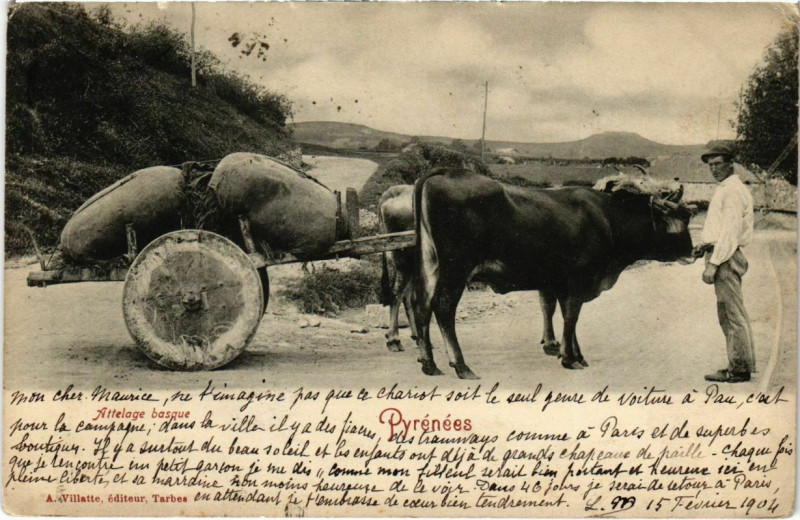 mon cher Maurice, ne t'imagine pas que ce chariot est le seul genre de voiture à Pau, c'est
Attelage basque
Pyrénées
pour la campagne; dans la ville il y a des fiacres, des tramways comme à Paris et de superbes
boutiques. Il y a surtout du beau soleil et les enfants ont déjà de grands chapeaux de paille - chaque fois
que je rencontre un petit garçon je me dis "comme mon filleul serait bien portant et heureux ici en
pleine liberté, et sa marraine non moins heureuse de le voir. Dans 46 jours je serai de retour à Paris,
A. Villatte, éditeur, Tarbes
en attendant je t'embrasse de cœur bien tendrement. 15 Février 1904